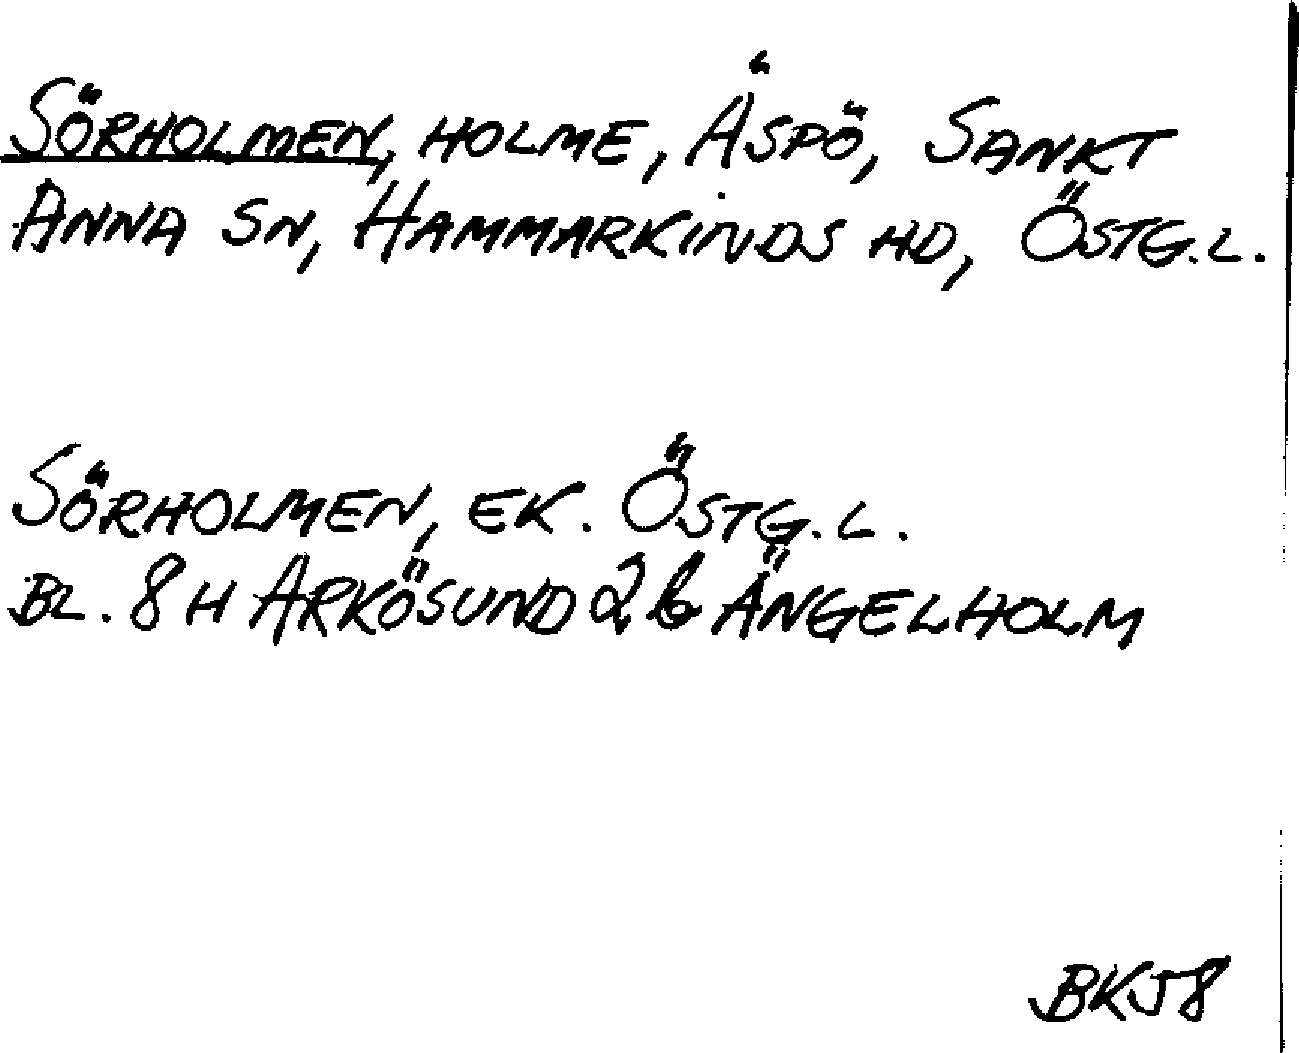 SÖRHOLMEN, HOLME, ÄSPÖ, SANKT
ANNA SN, HAMMARKINDS HD, ÖSTG.L.
SÖRHOLMEN, EK. ÖSTG.L.
BL. 8 H ARKÖSUND 2 b ÄNGELHOLM
BKJ8